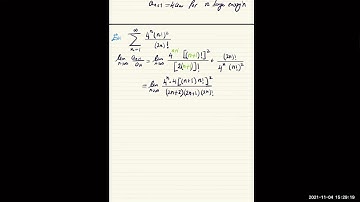 aₙ₊₁ = 4aₙ for n large enough
Ex: ∑_{n=1}^{∞} 4ⁿ(n!)² / (2n)!
lim_{n→∞} aₙ₊₁/aₙ = lim_{n→∞} 4ⁿ⁺¹ [(n+1)!]² / [2(n+1)]! · (2n)! / 4ⁿ (n!)²
= lim_{n→∞} 4ⁿ·4 [(n+1) n!]² / (2n+2)(2n+1)(2n)!
2021-11-04 15:29:19